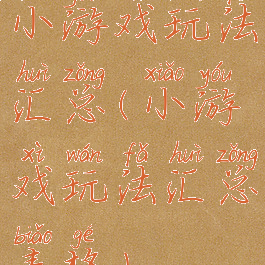 小游戏玩法
huì zǒng xiǎo yóu
汇总(小游
xì wán fǎ huì zǒng
戏玩法汇总
biǎo gé
表格)